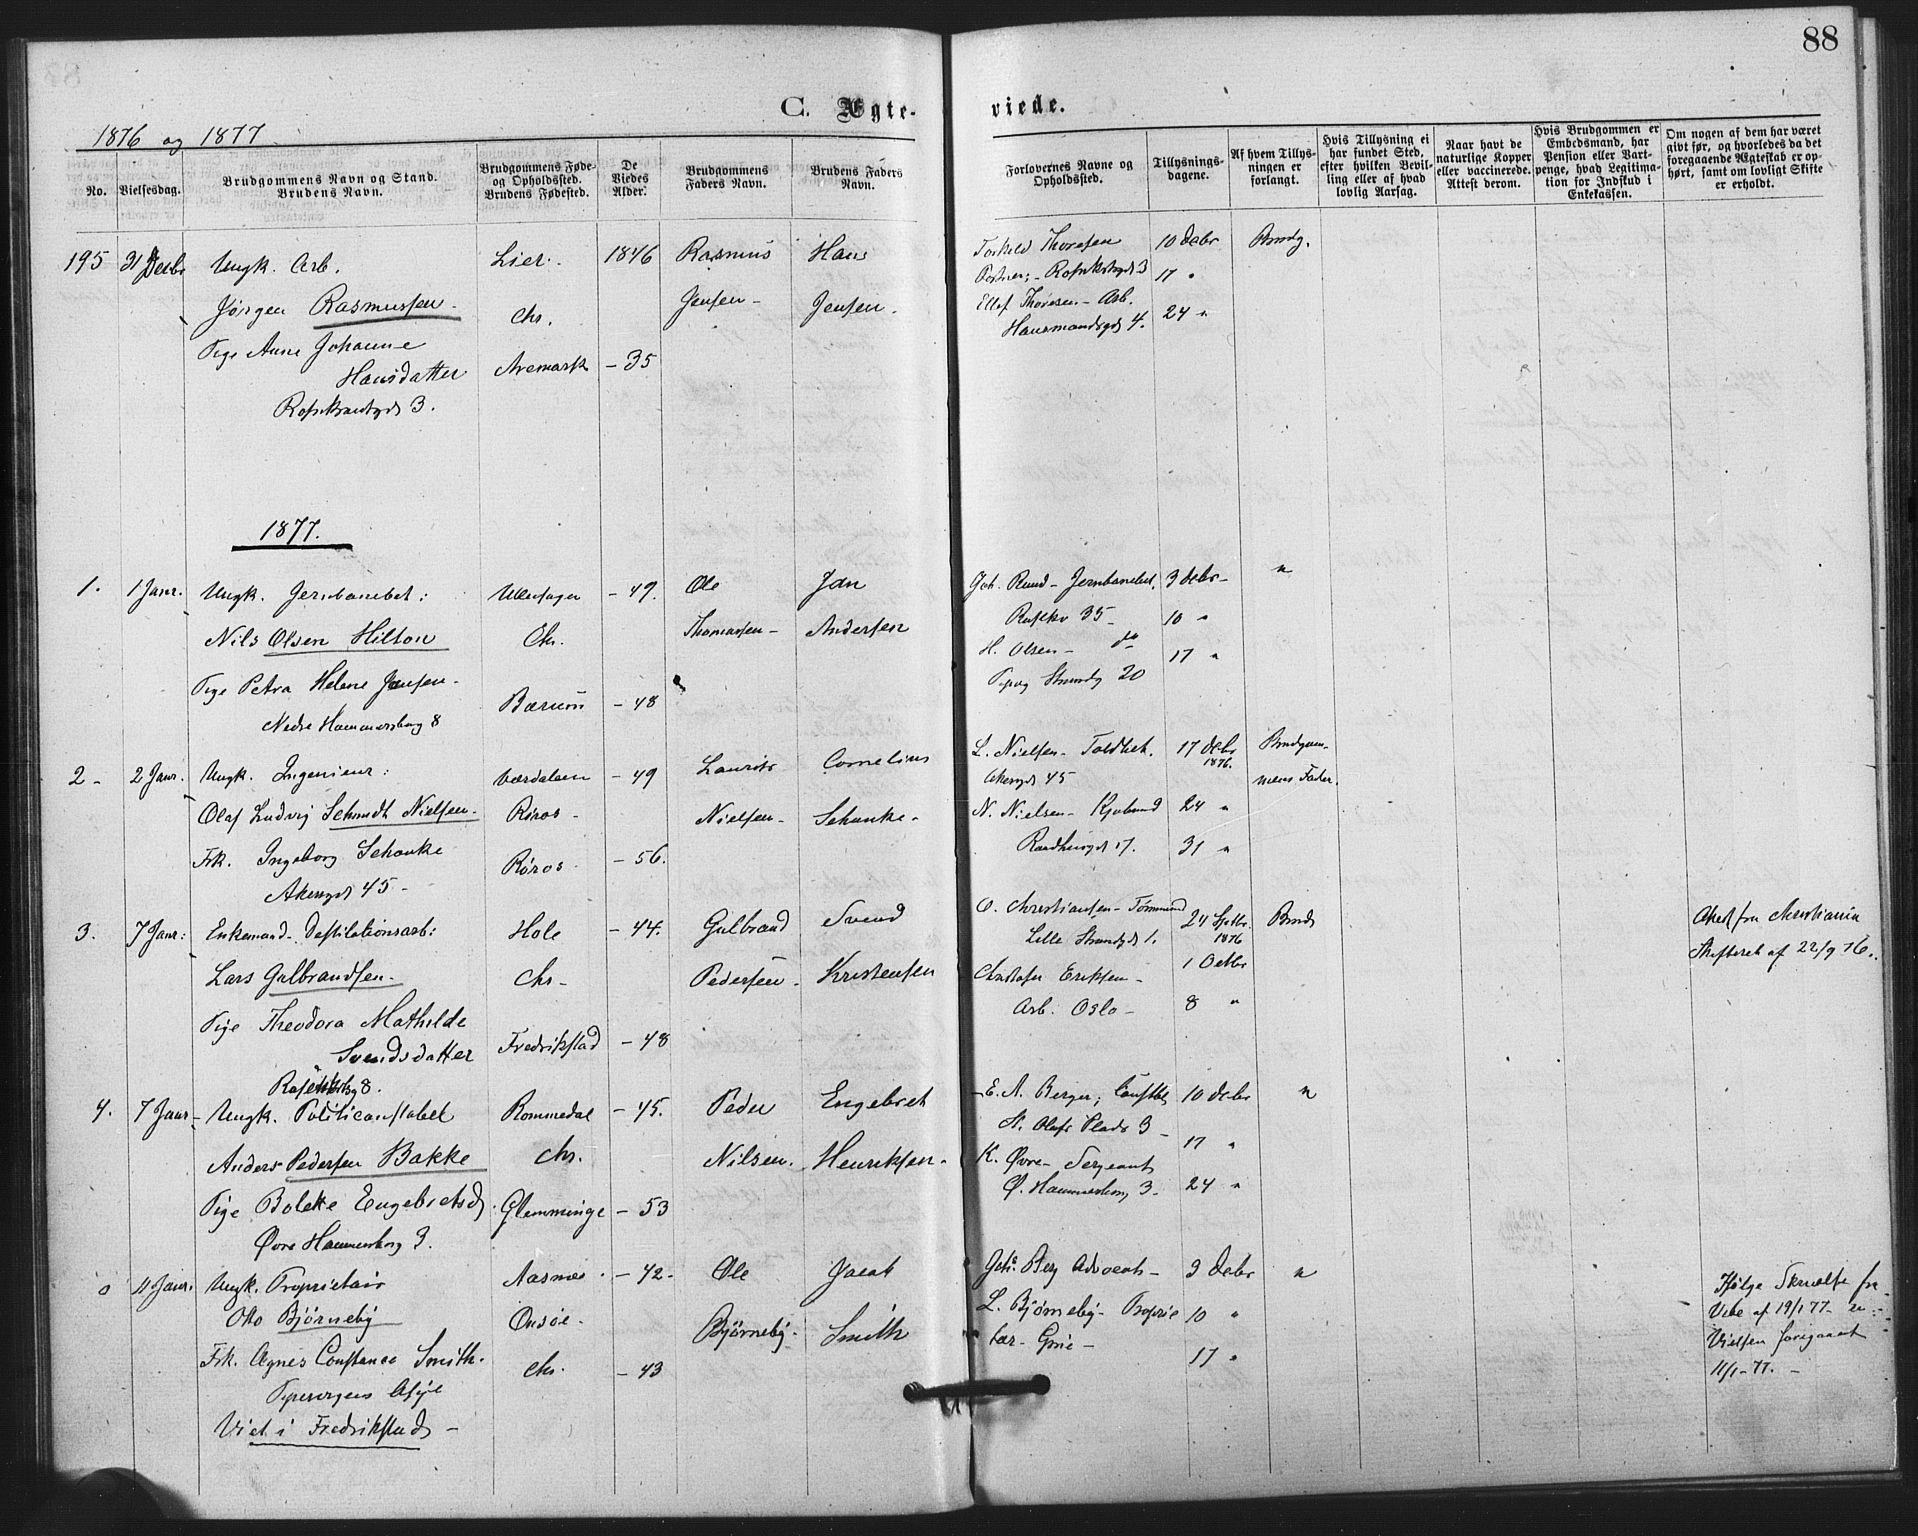 88
C. Ægteviede.
1876 og 1877
No. Vielsesdag. Brudgommens Navn og Stand. Brudens Navn. Brudgommens Føde- og Opholdssted. Brudens Fødested. De Viedes Alder. Brudgommens Faders Navn. Brudens Faders Navn. Forlovernes Navne og Opholdssted. Tillysningsdagene. Af hvem Tillysningen er forlangt. Hvis Tillysning ei har fundet Sted, efter hvilken Bevilling eller af hvad lovlig Aarsag. Naar havt de naturlige Kopper eller vaccinerede. Attest derom. Hvis Brudgommen er Embedsmand, har Pension eller Vartpenge, hvad Legitimation for Indskud i Enkekassen. Om nogen af dem har været givt før, og hvorledes da det foregaaende Ægteskab er ophørt, samt om lovligt Skifte er erholdt.
195 31 Decbr Ungk. Arb. Lier. 1846 Rasmus Hans Thoresen 10 Debr Brudg.
Jørgen Rasmussen Chr. Jensen Jensen. 17 "
Pige Anne Johanne Aremark - 35 Ellef Thoresen - Arb. 24 "
Hansdatter Hausmandsgd 4.
3.
1877.
1. 1 Janr. Ungk. Jernbanebet: Ullensager - 47. Ole Jan Joh. Ruud - Jernbanebet. 3 Debr - "
Nils Olsen Hilton Chr. Thomassen - Andersen 35 10 "
Pige Petra Helene Jansen - Bærum - 48 H. Olsen - do 17 "
Nedre Hammersborg 8 20
2 - 2 Janr. Ungk. Ingenieur: Værdalsen - 49 Laurits Cornelius L. Nielsen - Toldbet. 17 Debr 1876. Brudgommens Fader.
Olaf Ludvig Schmidt Nielsen. Røros - Nielsen - Schanke - Akersgd 45
Frk. Ingeborg Schanke Røros - 56. N. Nielsen - Kjøbmd 24 "
Akersgd 45 - Raadhusgd 17. 31 "
3. 7 Janr: Enkemand - Destilationsarb: Hole - 44. Gulbrand Svend O. Christiansen - Tømmermd 24 Septbr. 1876 Brudg
Lars Gulbrandsen - Chr - Pedersen. Kristensen Lille Strandgd 1. 1 Octbr
Pige Theodora Mathilde Fredrikstad - 48 Christofer Eriksen - 8 "
Svendsdatter Arb. Oslo -
8. Attest fra Christiania
Skifteret af 22/9 76.
4. 7 Janr - Ungk. Politiconstabel Rommedal - 45. Peder Engebret E. A. Berger; Constbl 10 Debr "
Anders Pedersen Bakke Chr. Nilsen. Henriksen - St. Olafs Plads 3 - 17 "
Pige Bolette Engebretsd. Glemminge - 53 K. Øvre - Sergeant 24 "
Øvre Hammersborg 3. Ø. Hammersborg 3.
0 11 Janr. Ungk. Proprietair Aasnes - 42 - Ole Jacob Johs. Berg Advocat - 3 Debr "
Otto Bjørneby Onsøe - Bjørneby - Smith L. Bjørneby - Proprie 10 "
Frk. Agnes Constance Smith. Chr. - 43 tær - 17 "
Viet i Fredrikstad -
Ifølge Skrivelse fra
Vibe af 19/1 77 - er
Vielsen foregaaet
11/1 - 77. -